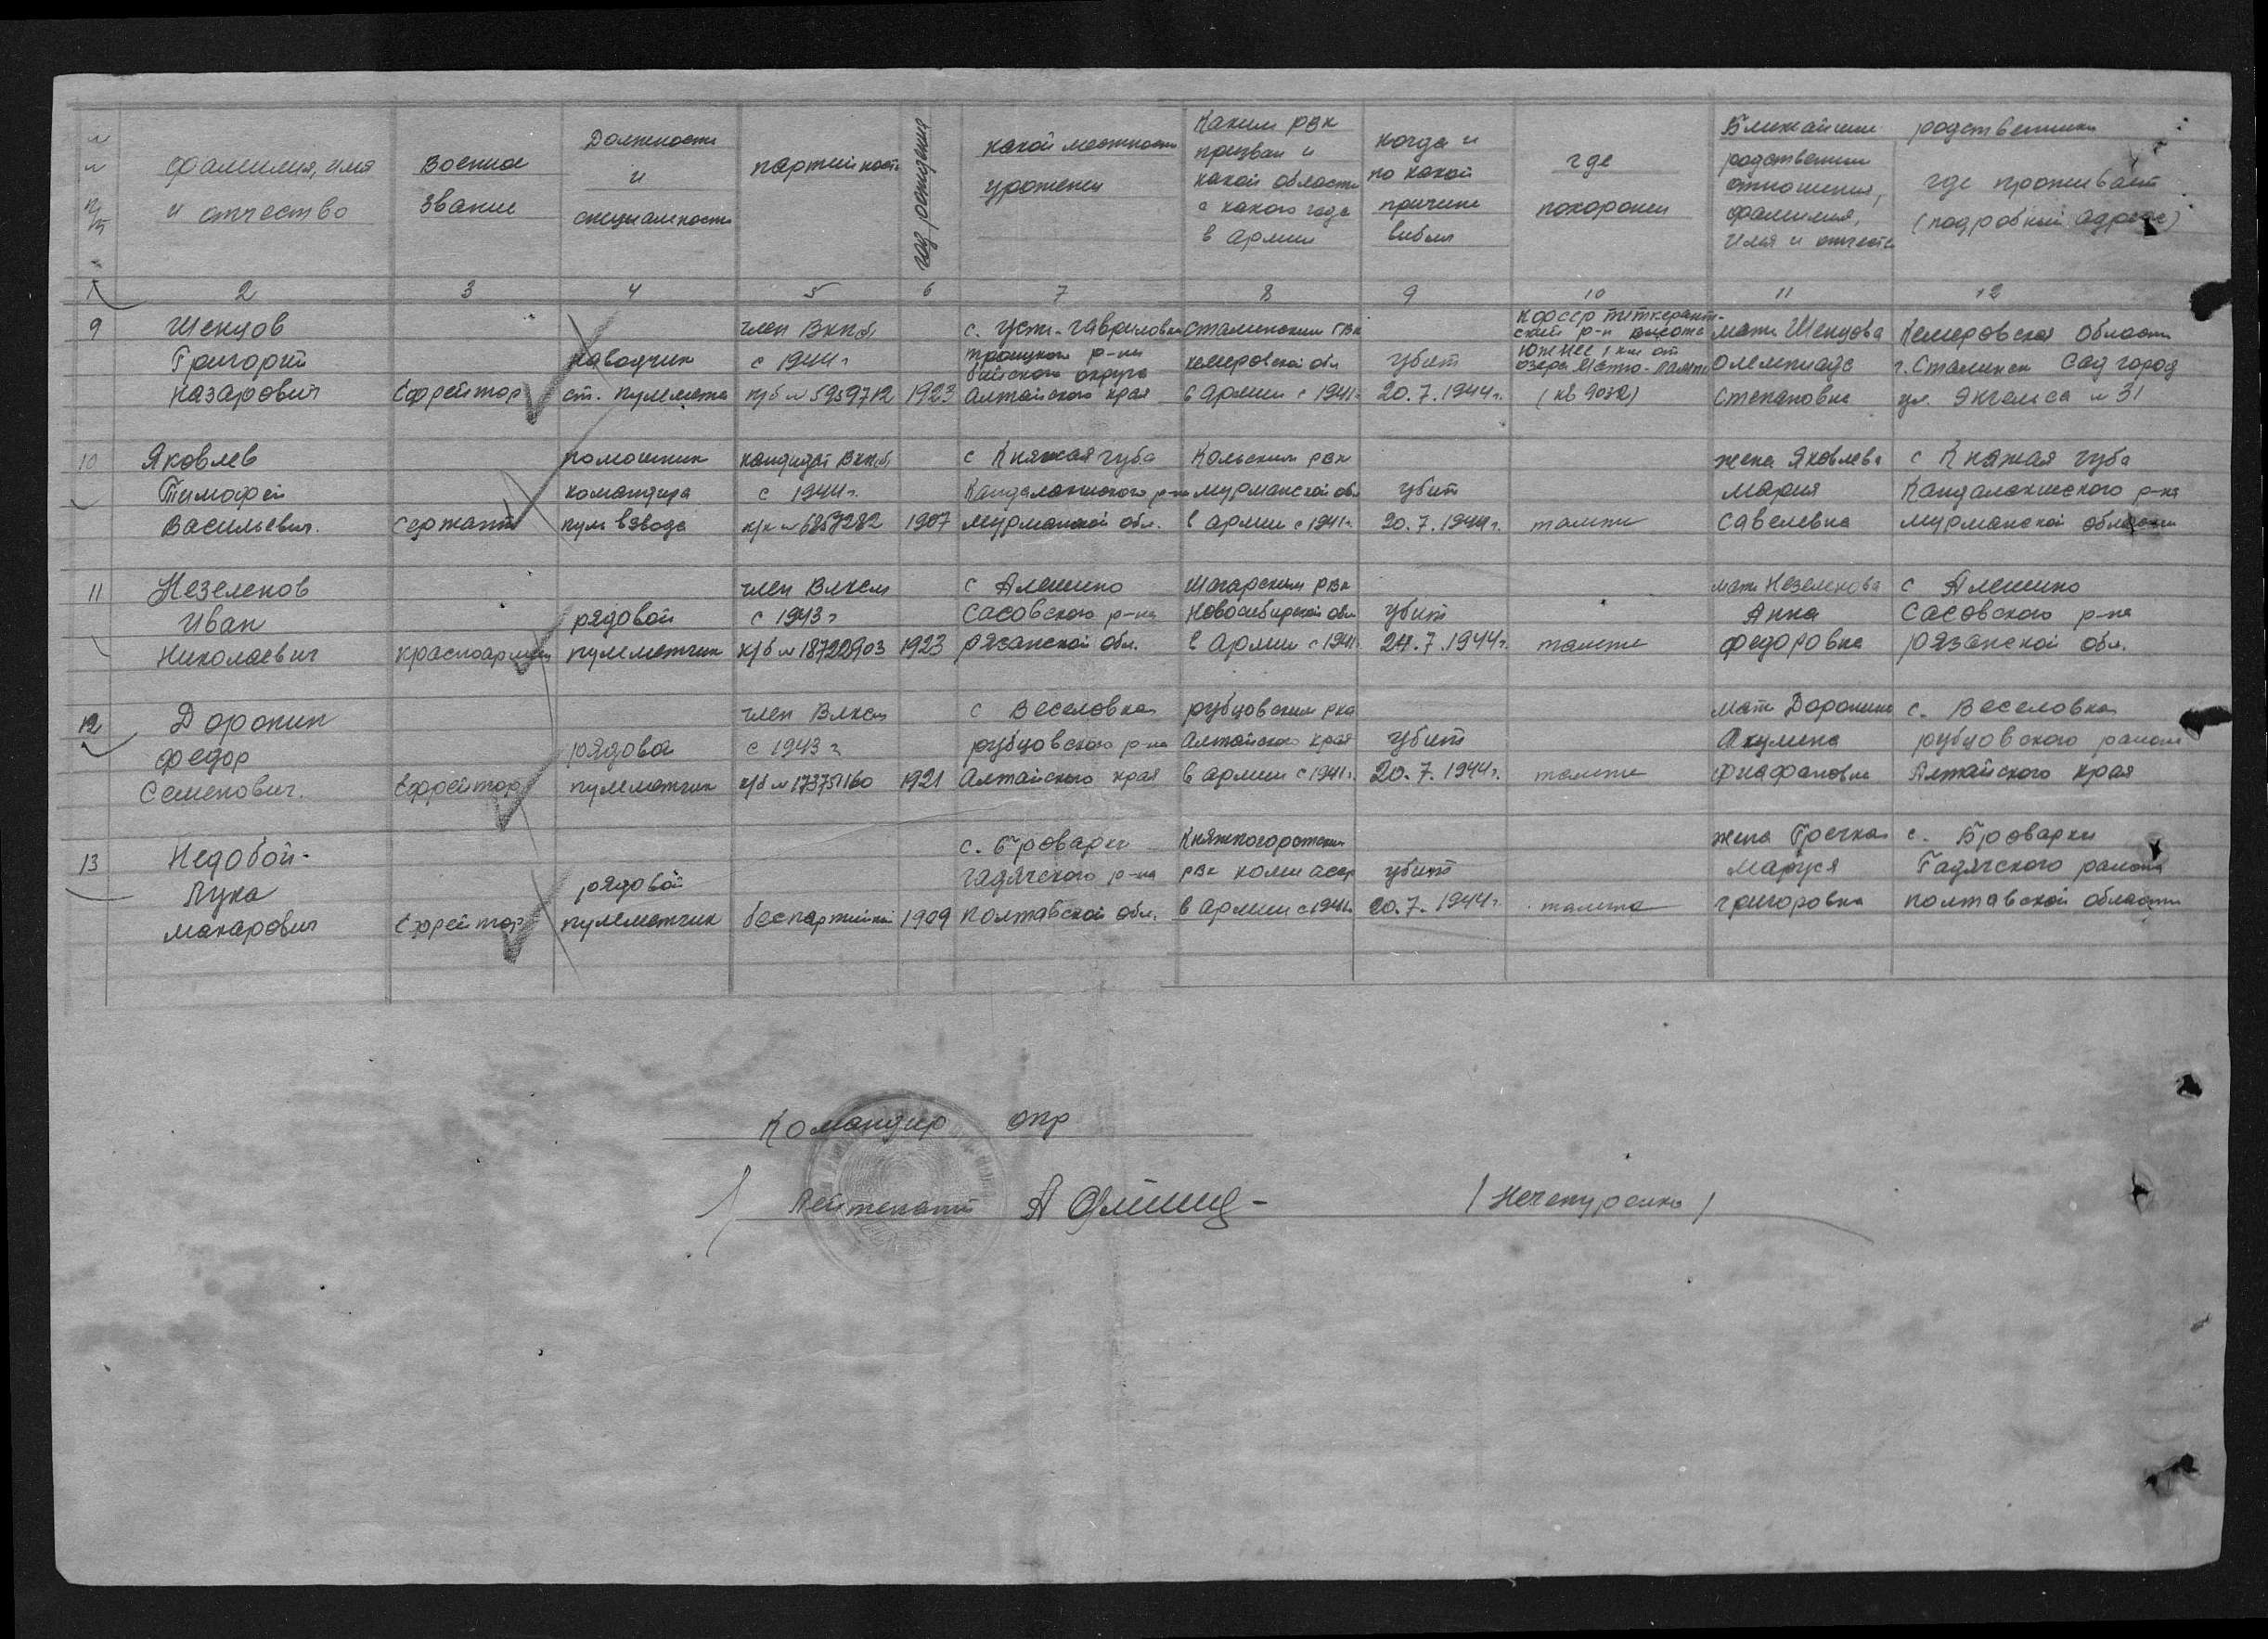 №№ п/п
фамилия, имя
и отчество
военное
звание
Должность
и
специальность
партийность
год рождения
какой местности
уроженец
Каким РВК
призван и
какой области
с какого года
в армии
когда и
по какой
причине
выбыл
где
похоронен
Ближайшие родственники
родственные
отношения,
фамилия,
имя и отчество
где проживает
(подробный адрес)
1 2 3 4 5 6 7 8 9 10 11 12
9
Шенцов
Григорий
Назарович
Ефрейтор
наводчик
ст. пулемета
член ВКПб
с 1944 г
п/б № 5959712
1923
с. Усть-Гавриловка
Троицкого р-на
бийского округа
Алтайского края
Сталинским ГВК
кемеровской обл
в армии с 1941г
убит
20.7.1944г.
КФССР питкярант-
ский р-н высота
южнее 1 км от
озера
(кв 9032)
мать Шенцова
Олемпиада
Степановна
Кемеровская область
г. Сталинск Сад город
ул. Энгельса № 31
10
Яковлев
Тимофей
Васильевич.
сержант
помошник
командира
пул взвода
кандидат ВКПб
с 1944г.
к/к № 6853282
1907
с Княжая губа
Кандалакшского р-на
мурманской обл.
Кольским РВК
мурманской обл
в армии с 1941г.
убит
20.7.1944г.
тамже
жена Яковлева
Мария
Савелевна
с Княжая губа
Кандалакшского р-на
мурманской области
11
Незеленов
Иван
Николаевич
красноармеец
рядовой
пулеметчик
член Влксм
с 1943 г
к/б № 18722903
1923
с Алешино
Сасовского р-на
рязанской обл.
РВК
Новосибирской обл
в армии с 1941г
убит
24.7.1944г.
тамже
мать Незеленова
Анна
федоровна
с Алешино
Сасовского р-на
рязанской обл.
12
Доронин
федор
Семенович.
Ефрейтор
рядовой
пулеметчик
член Влксм
с 1943 г
к/б № 17375160
1921
с Веселовка
рубцовского р-на
Алтайского края
рубцовским рвк
Алтайского края
в армии с 1941г.
убит
20.7.1944г.
тамже
мать Доронина
Акулина
с. Веселовка
рубцовского района
Алтайского края
13
Недобой-
Лука
макарович
Ефрейтор
рядовой
пулеметчик
беспартийный
1909
с. Броварки
гадячского р-на
Полтавской обл.
Княжпогорстским
рвк коми асср
в армии с 1941г.
убит
20.7.1944г.
тамже
жена Гречка
Маруся
григоровна
с. Броварки
Гадячского района
полтавской области
Командир опр
Лейтенант
/Нечепуренко/